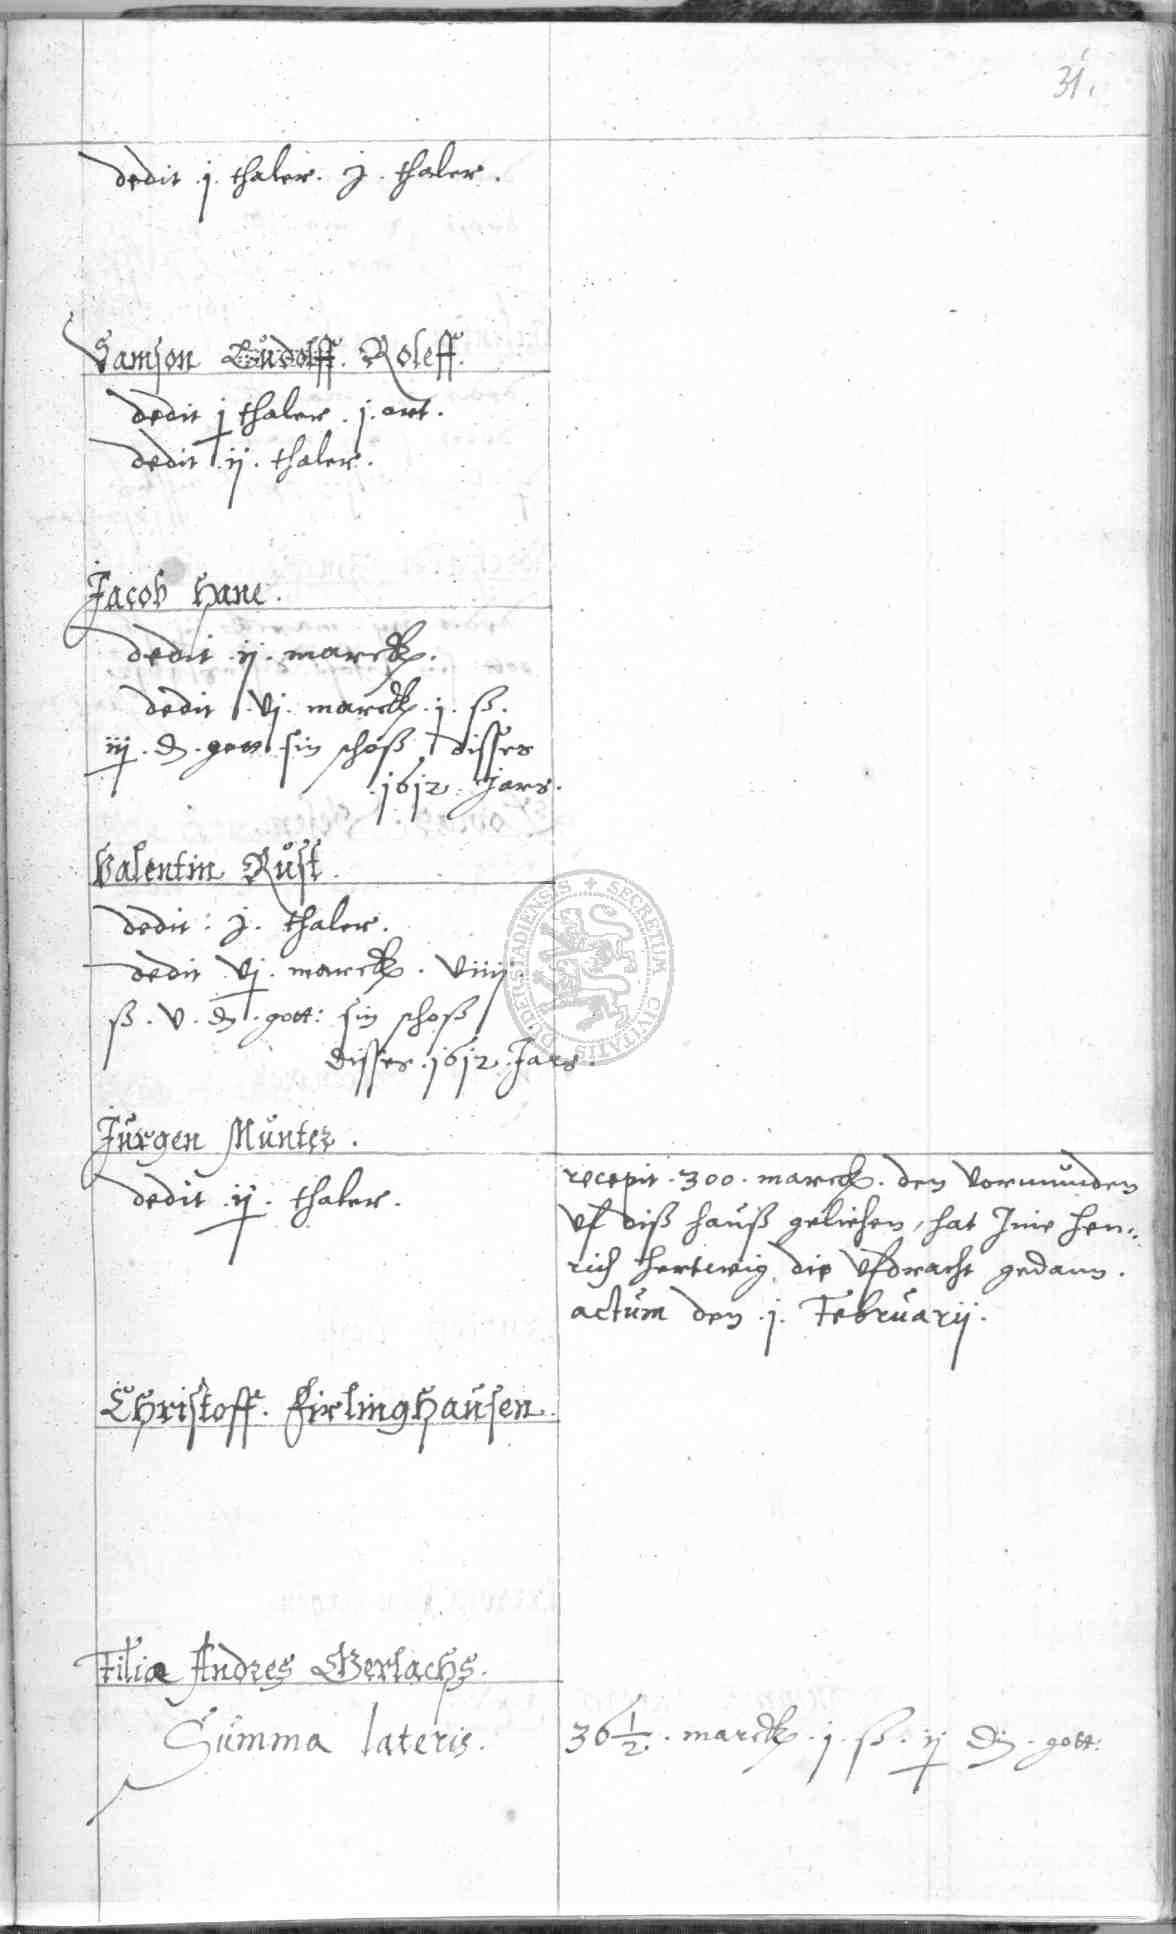 31.
dedit j. thaler. j. thaler.
Samson Rudolff. Roleff.
dedit j thaler. j. ort.
dedit ij. thaler.
Jacob Hane.
dedit ij. marck.
dedit vj. marck. j. ß.
iij. d. gott sin schoß disses
1612. Jars.
Valentin Rust.
dedit: j. thaler.
dedit vj. marck. viiij
ß. v. d. gott: sin schoß
disses. 1612. Jars.
DUDERSTADIENSIS + SECRETUM CIVITATIS
Jurgen Munter.
dedit ij. thaler.
recepit. 300. marck. den vormunden
vf diß hauß geliehen, hat Ime Hen-
rich Hertwig die vfdracht gedann.
actum den j. Februarij.
Christoff. Firlinghausen.
Filiæ Andres Gerlachs.
Summa lateris. 36 1/2. marck. j. ß. ij d. gott: